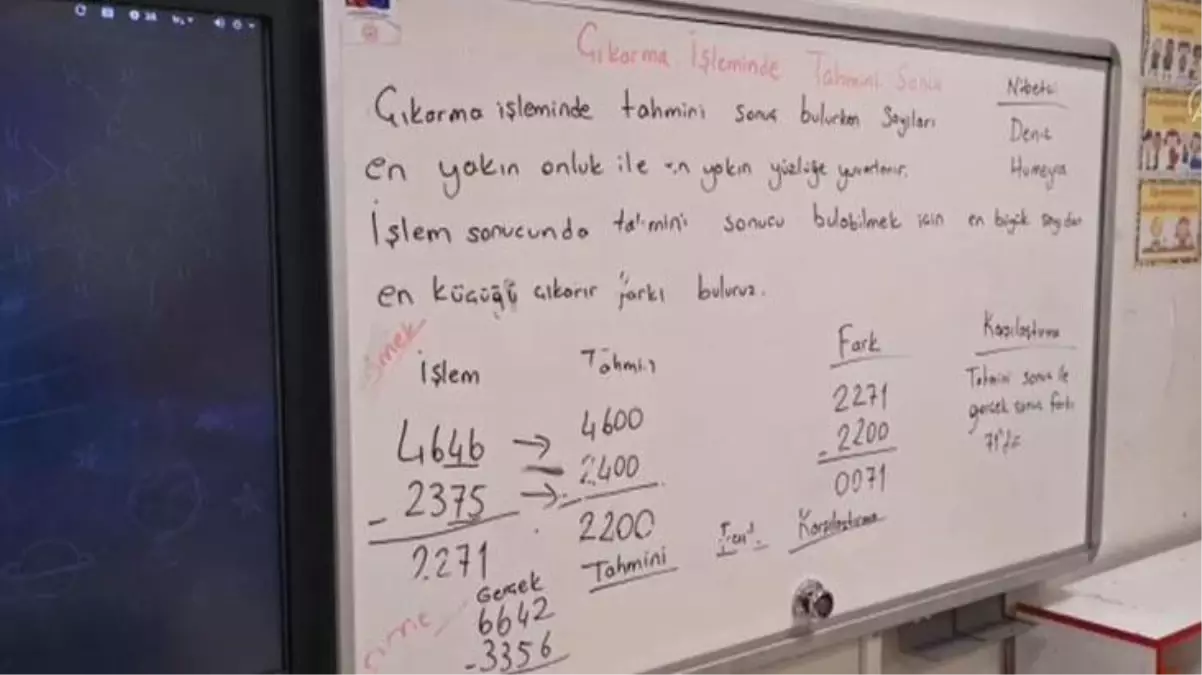 Çıkarma İşleminde Tahmini Sonuç
Nöbetci
Deniz
Humeyra
Çıkarma işleminde tahmini sonuç bulurken sayıları
en yakın onluk ile en yakın yüzlüğe yuvarlanır.
İşlem sonucunda tahmini sonucu bulabilmek için en büyük sayıdan
en küçüğü çıkarır farkı buluruz.
Örnek
İşlem
4646
- 2375
2271
Gerçek
Tahmini
4600
- 2400
2200
Tahmini
Fark
2271
- 2200
0071
Karşılaştırma
Karşılaştırma
Tahmini sonuç ile
gerçek sonuç farkı
71'dir
6642
- 3356